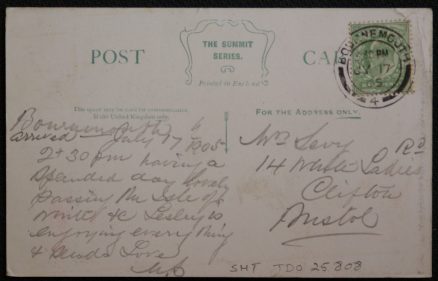 POST
THE SUMMIT
SERIES.
Printed in England
CARD
BOURNEMOUTH
JY 17
05
4
This space may be used for correspondence
in the United Kingdom only.
FOR THE ADDRESS ONLY.
Bournemouth
arrived July 17 1905
2.30 pm having a
splendid day lovely
passing the Isle of
Wight &c Lesley is
enjoying everything
& sends Love
Mrs Levy
14 White Ladies Rd
Clifton
Bristol
SHT TDO 25808